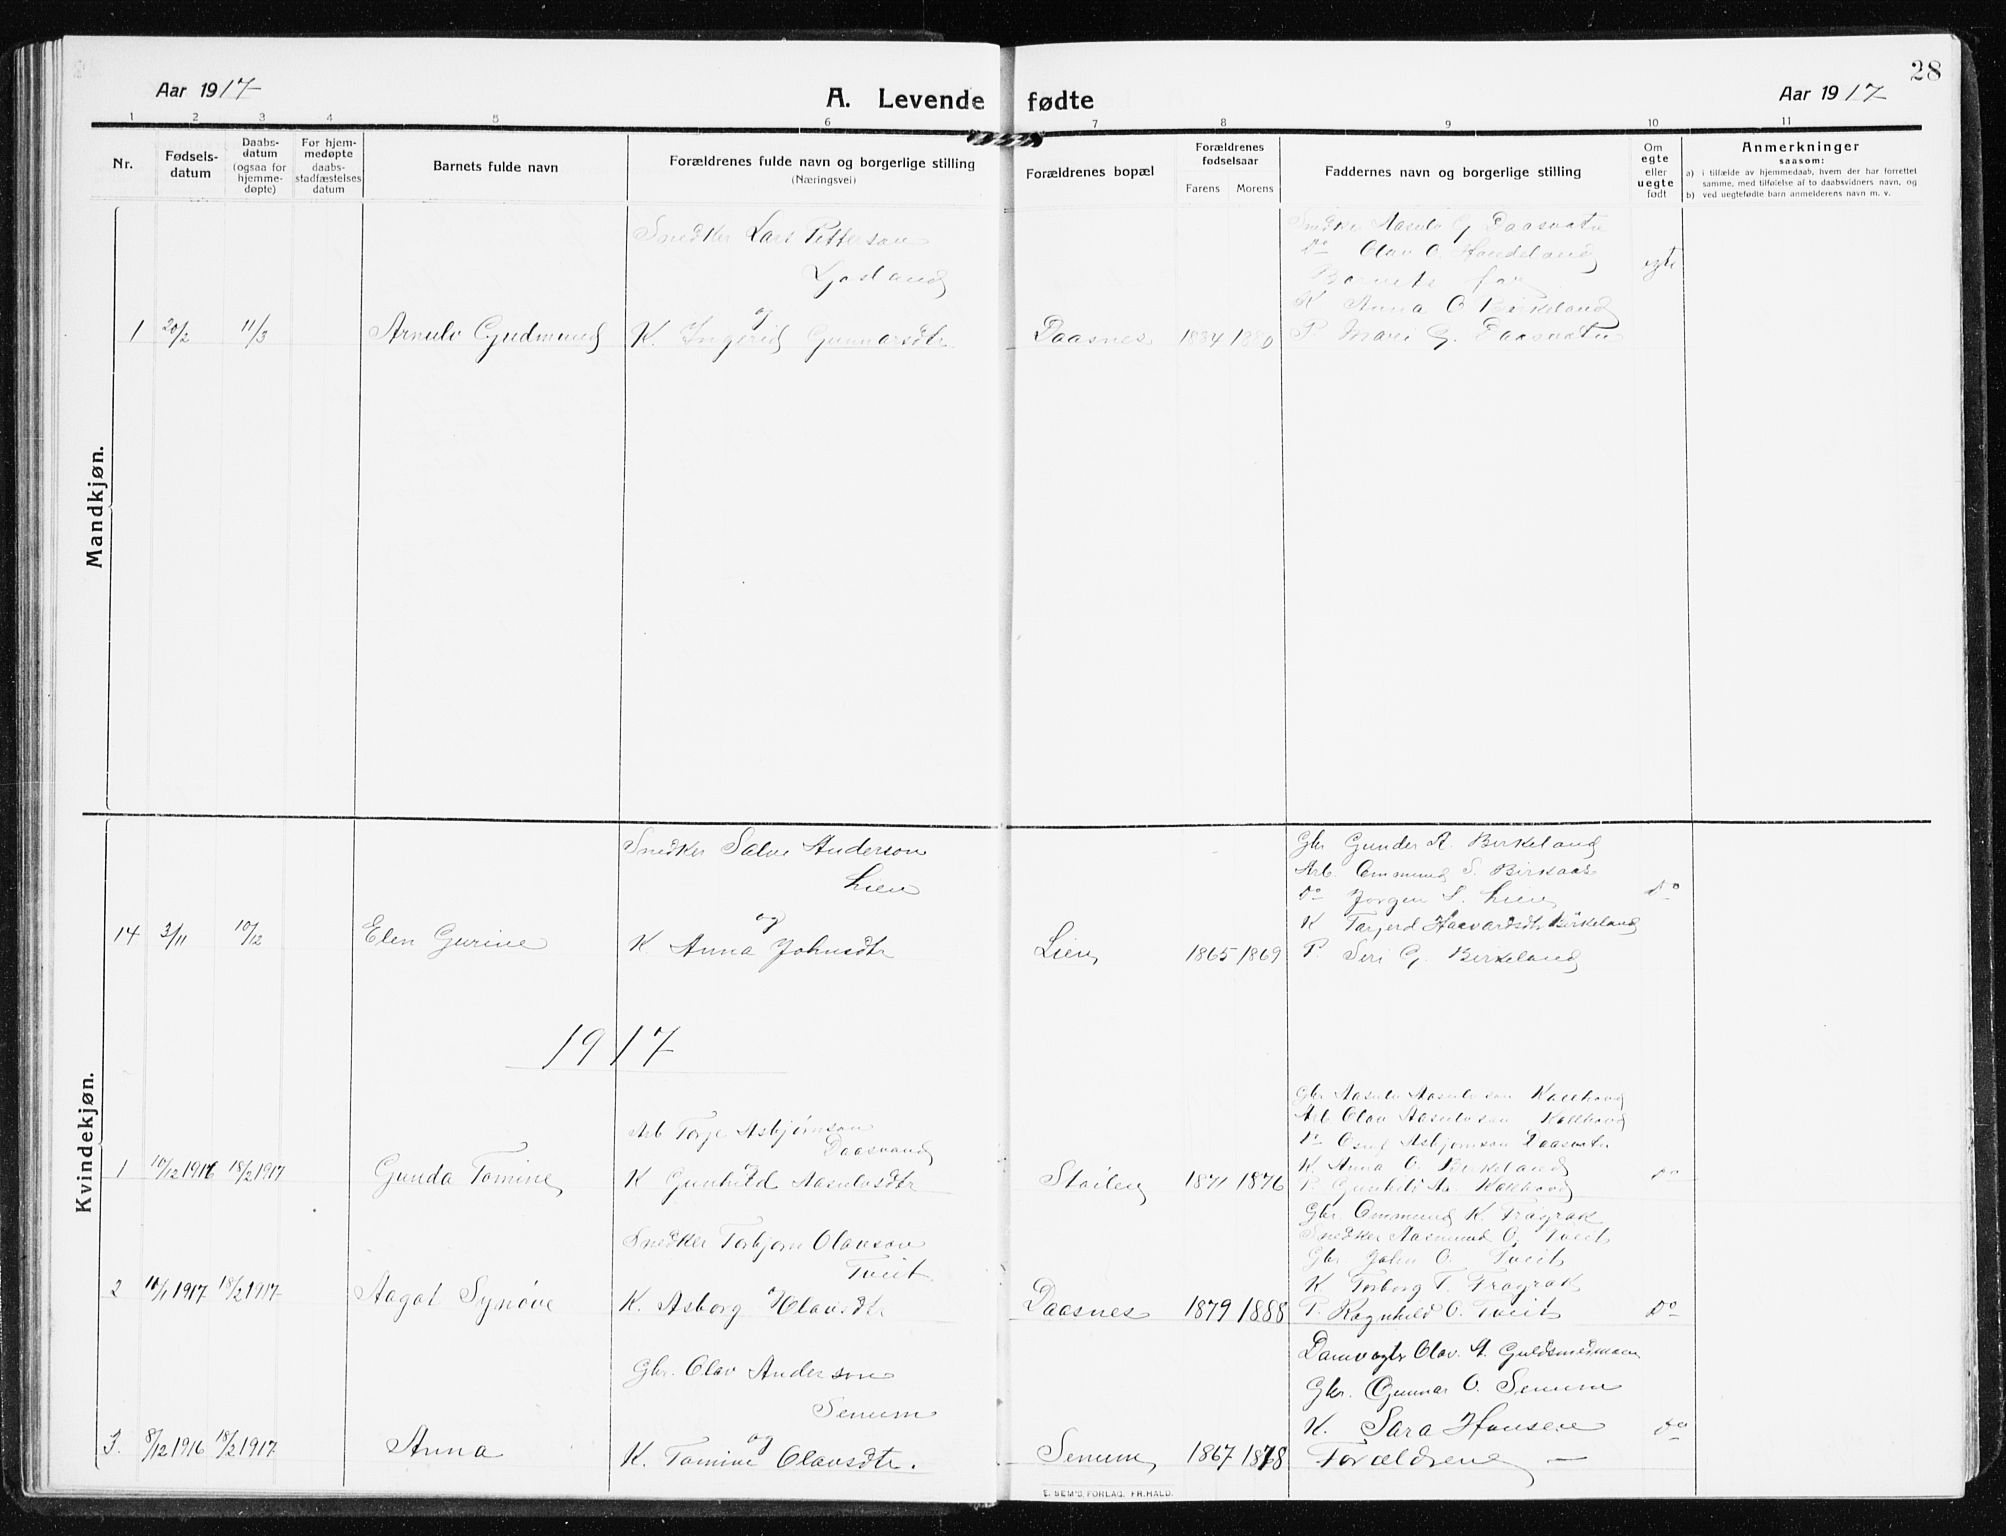 28
Aar 1917
A. Levende fødte
Aar 1917
1 2 3 4 5 6 7 8 9 10 11
Nr.
Fødsels-
datum
Daabs-
datum
(ogsaa for
hjemme-
døpte)
For hjem-
medøpte
daabs-
stadfæstelses
datum
Barnets fulde navn
Forældrenes fulde navn og borgerlige stilling
(Næringsvei)
Forældrenes bopæl
Forældrenes
fødselsaar
Farens Morens
Faddernes navn og borgerlige stilling
Om
egte
eller
uegte
født
Anmerkninger
saasom:
a) i tilfælde av hjemmedaab, hvem der har forrettet
samme, med tilføielse af to daabsvidners navn, og
b) ved uegtefødte barn anmelderens navn m. v.
Mandkjøn.
1 20/2 11/3 Arnulv Gudmund
Snedker Lars Petterson
Ljosland
og
K. Ingerid Gunnarsdtr
Daasnes 1884 1880
Snedker Aasulv G Daasvatn
do Olav O. Handeland
Barnets far
K Anna O Birkeland
P Mari G. Daasvatn
egte
Kvindekjøn.
14 3/11 10/12 Elen Gurine
Snedker Salve Anderson
Lien
og
K. Anna Johnsdtr
Lien 1865 1869
Gbr Gunder A. Birkeland
Arb. Ommund S. Birkaas
do Jørgen S. Lien
K Tarjerd Haavardsdtr Birkeland
P. Siri G. Birkeland
do
1917
1 10/12 1916 18/2 1917 Gunda Tomine
Arb Torje Asbjørnson
Daasvand
K Gunhild Aasulvsdtr
Støilen 1871 1876
Gbr Aasulv Aasulvson Kallhovd
Arb. Olav Aasulvson Kallhovd
do Osuf Asbjørnson Daasvatn
K. Anna O. Birkeland
P. Gunhild As. Kallhovd
do
2 10/1 1917 18/2 1917 Aagot Synøve
Snedker Torbjørn Olavson
Tveit
K. Asborg Olavsdtr
Daasnes 1879 1888
Gbr. Ommund K. Frøyrak
Snedker Aasmund O. Tveit
Gbr John O. Tveit
K Torborg T. Frøyrak
P. Ragnhild O. Tveit
do
3. 8/12 1916 18/2 1917 Anna
Gbr. Olav Anderson
Senum
og
K. Tomine Olavsdtr.
Senum 1867 1878
Damvogter Olav A. Guldsmedmoen
Gbr. Gunnar O. Senum
K. Sara Hansen
Forældrene —
do
E. SEM'S FORLAG. FR.HALD.